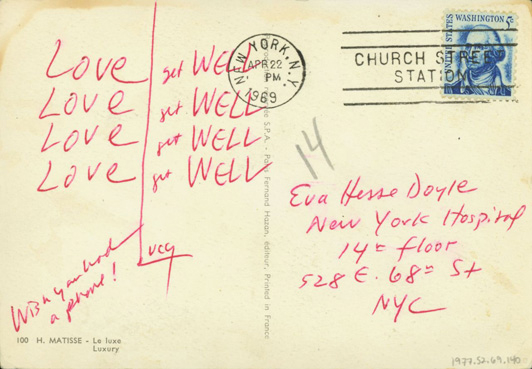 Love get WELL
Love get WELL
Love get WELL
Love get WELL
Lucy
Wish you had
a phone!
100 H. MATISSE - Le luxe
Luxury
S.P.A. - Paris Fernand Hazan, éditeur, Printed in France
NEW YORK, N.Y.
APR 22
PM
1969
CHURCH STREET
STATION
UNITED STATES
WASHINGTON 5c
14
Eva Hesse Doyle
New York Hospital
14th floor
528 E. 68th St
NYC
1977.52.69.140